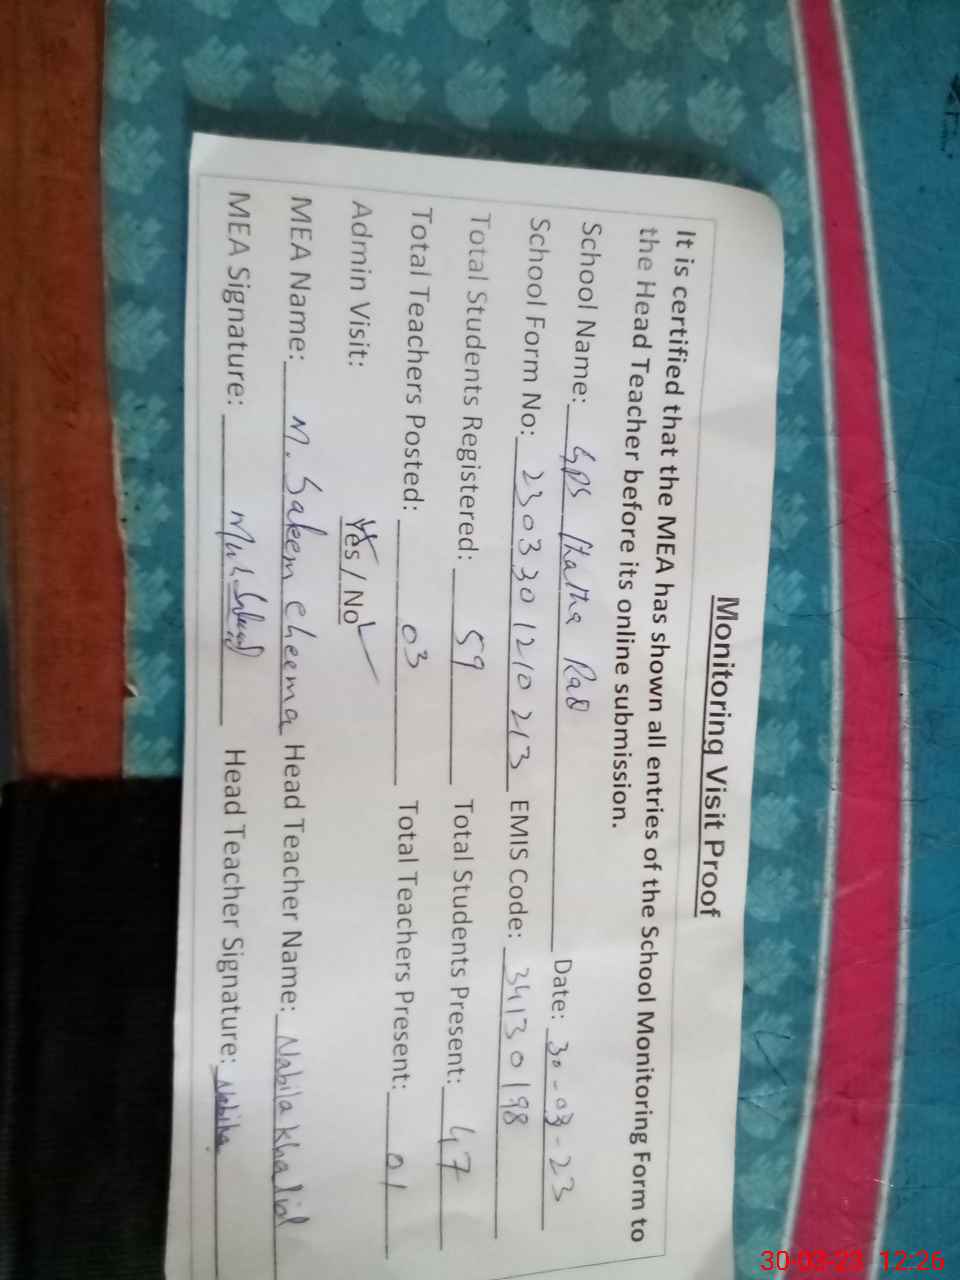 Monitoring Visit Proof
It is certified that the MEA has shown all entries of the School Monitoring Form to
the Head Teacher before its online submission.
School Name: GPS Date: 30-03-23
School Form No: 2303301210213 EMIS Code: 34130198
Total Students Registered: 59 Total Students Present: 47
Total Teachers Posted: 03 Total Teachers Present: 01
Admin Visit: Yes / No
MEA Name: M. Saleem cheema Head Teacher Name: Nabila Khalid
MEA Signature: Head Teacher Signature: Nabila
30-03-23 12:26